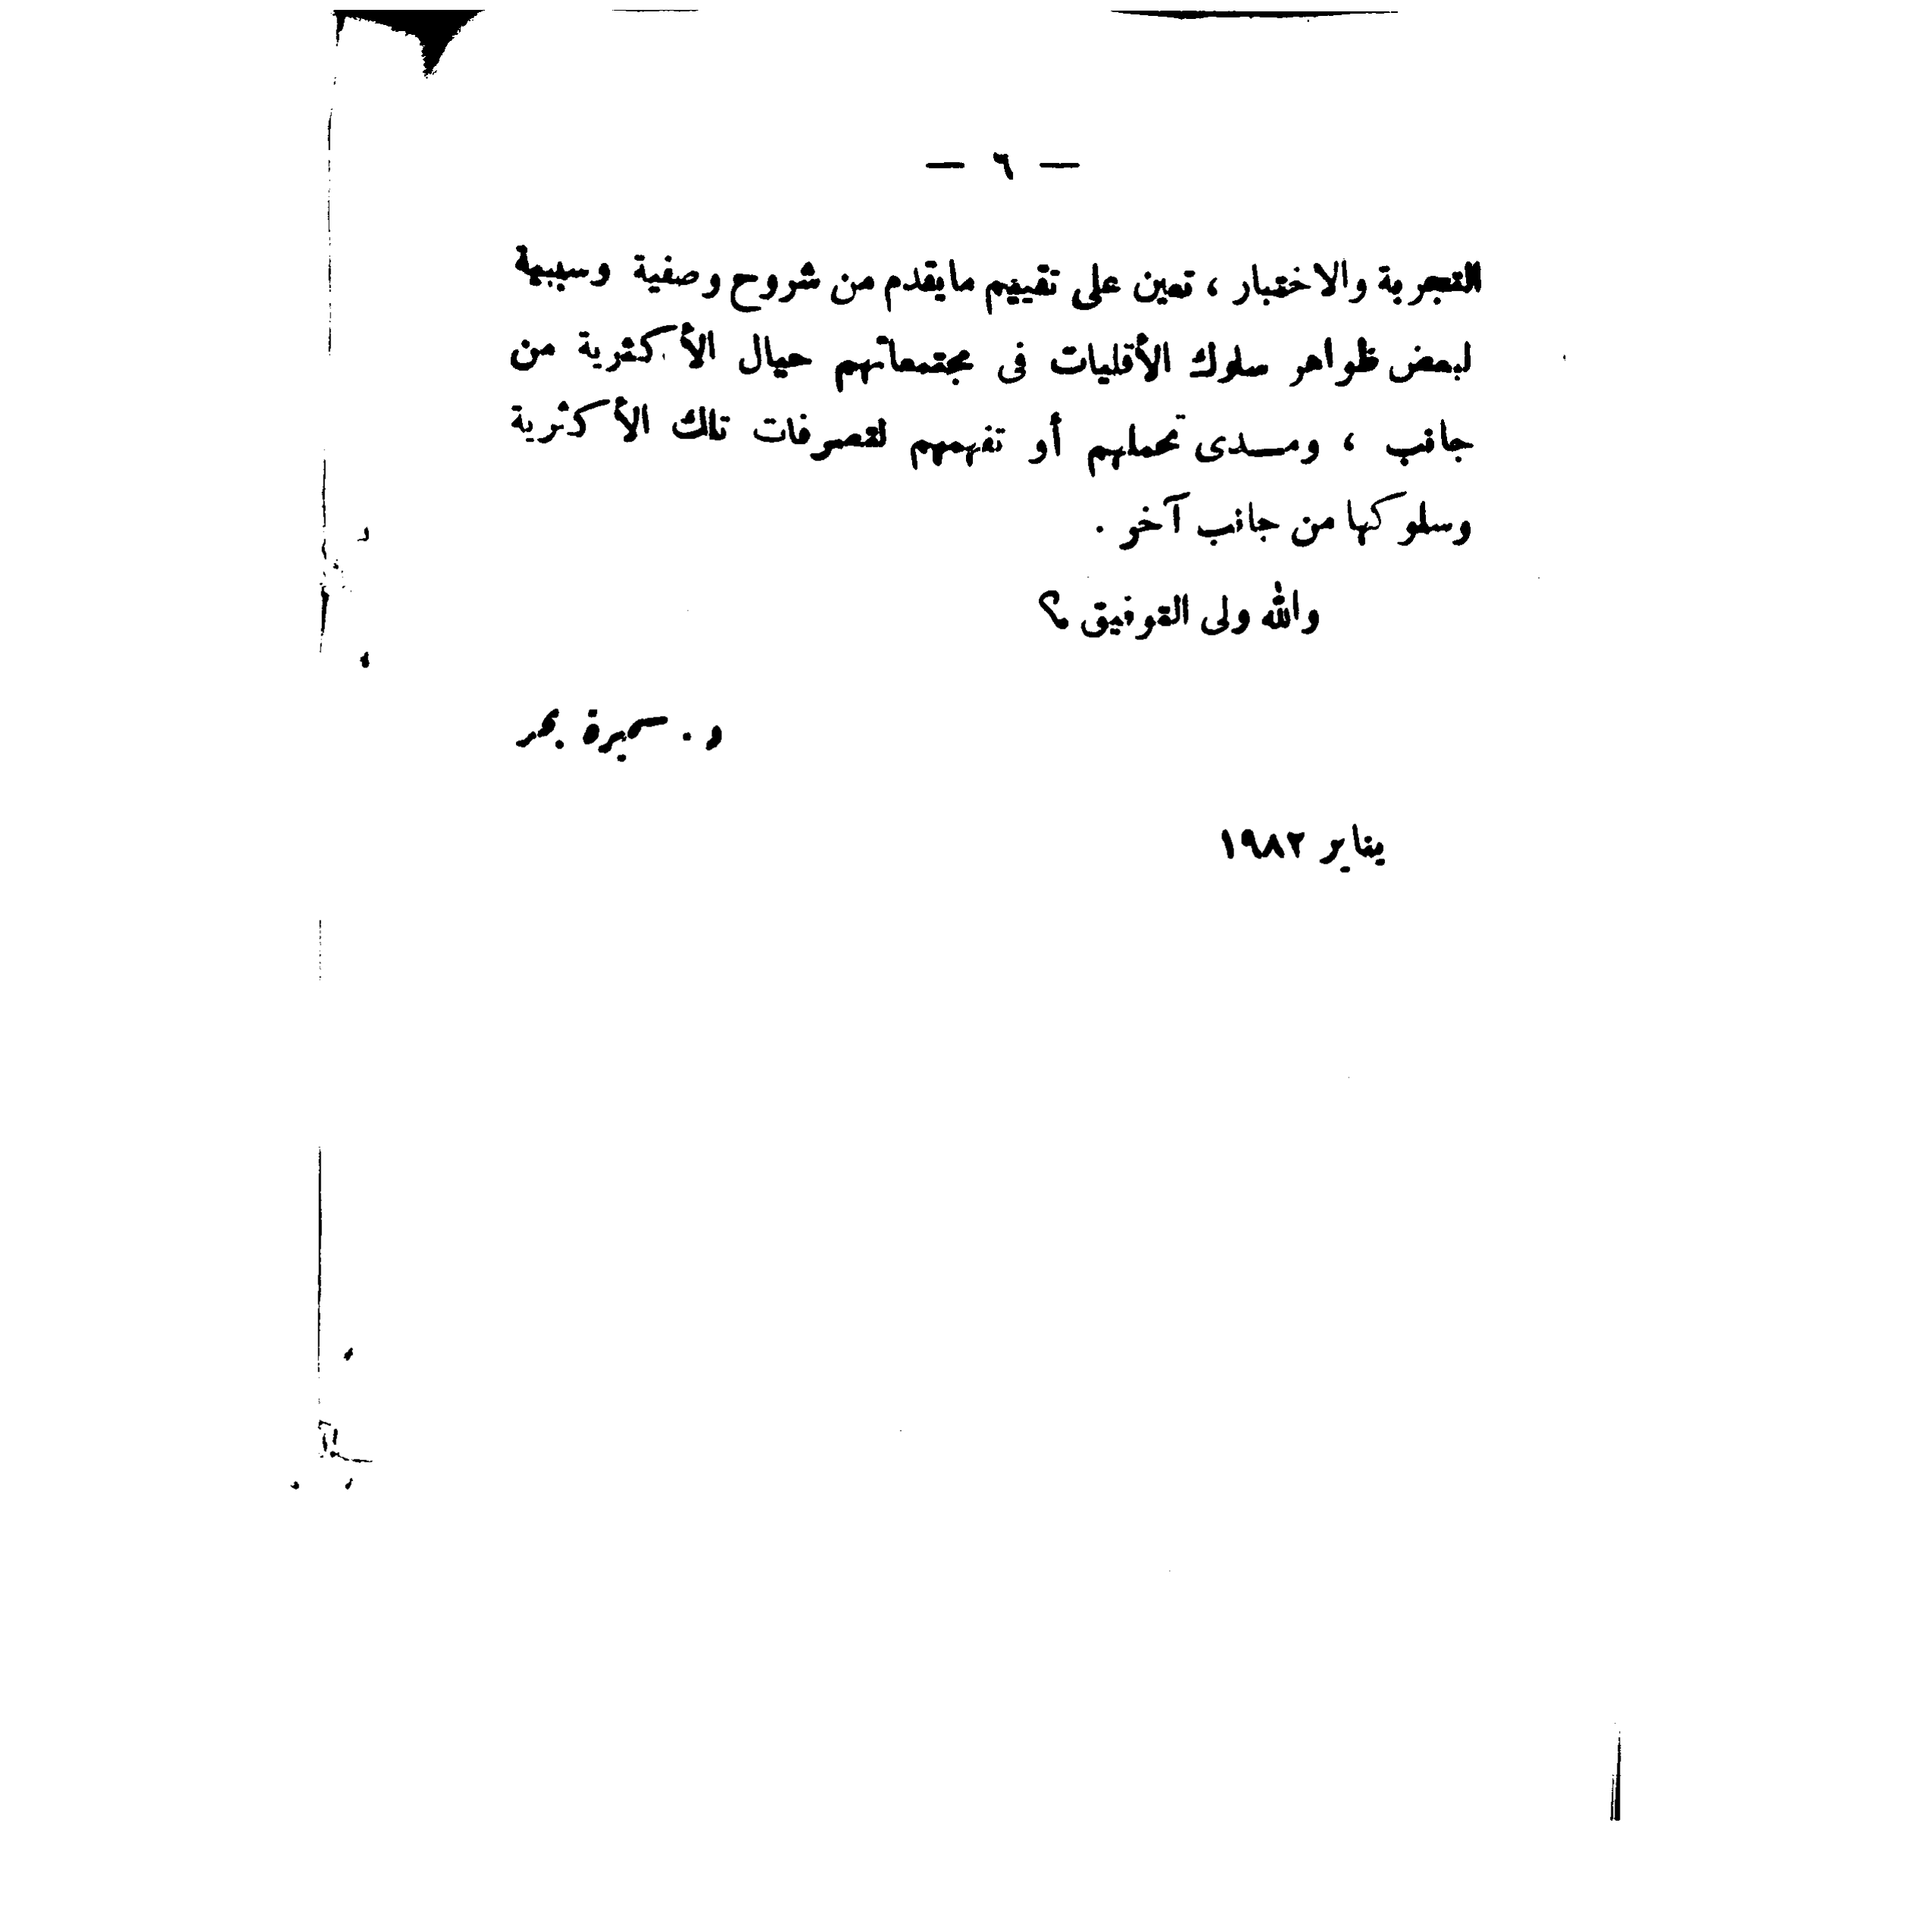 — ٦ —
التجربة والاختبار ، تعين على تقييم مايقدم من شروح وصفية وسببية
لبعض ظواهر سلوك الأقليات فى مجتمعاتهم حيال الأكثرية من
جانب ، ومدى تحملهم أو تفهمهم لتصرفات تلك الأكثرية
وسلوكها من جانب آخر .
والله ولى التوفيق ؟
د . سميرة بحر
يناير ١٩٨٢